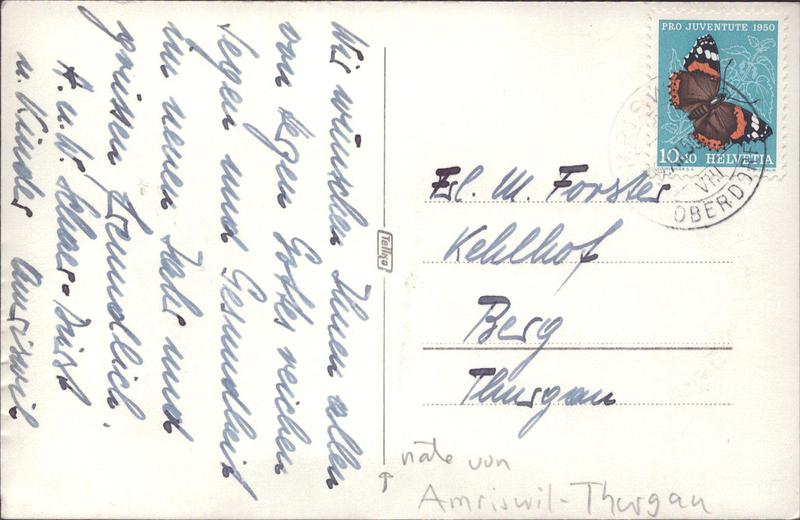 Wir wünschen Ihnen allen
von Herzen Gottes reichen
Segen und Gesundheit
im neuen Jahr und
grüssen freundlich.
A. u. W.
u. Kinder Amriswil
PRO JUVENTUTE 1950
10+10 HELVETIA
VIII
OBERDORF
Frl. M. Forster
Kehlhof
Berg
Thurgau
Tellko
näte von
Amriswil-Thurgau